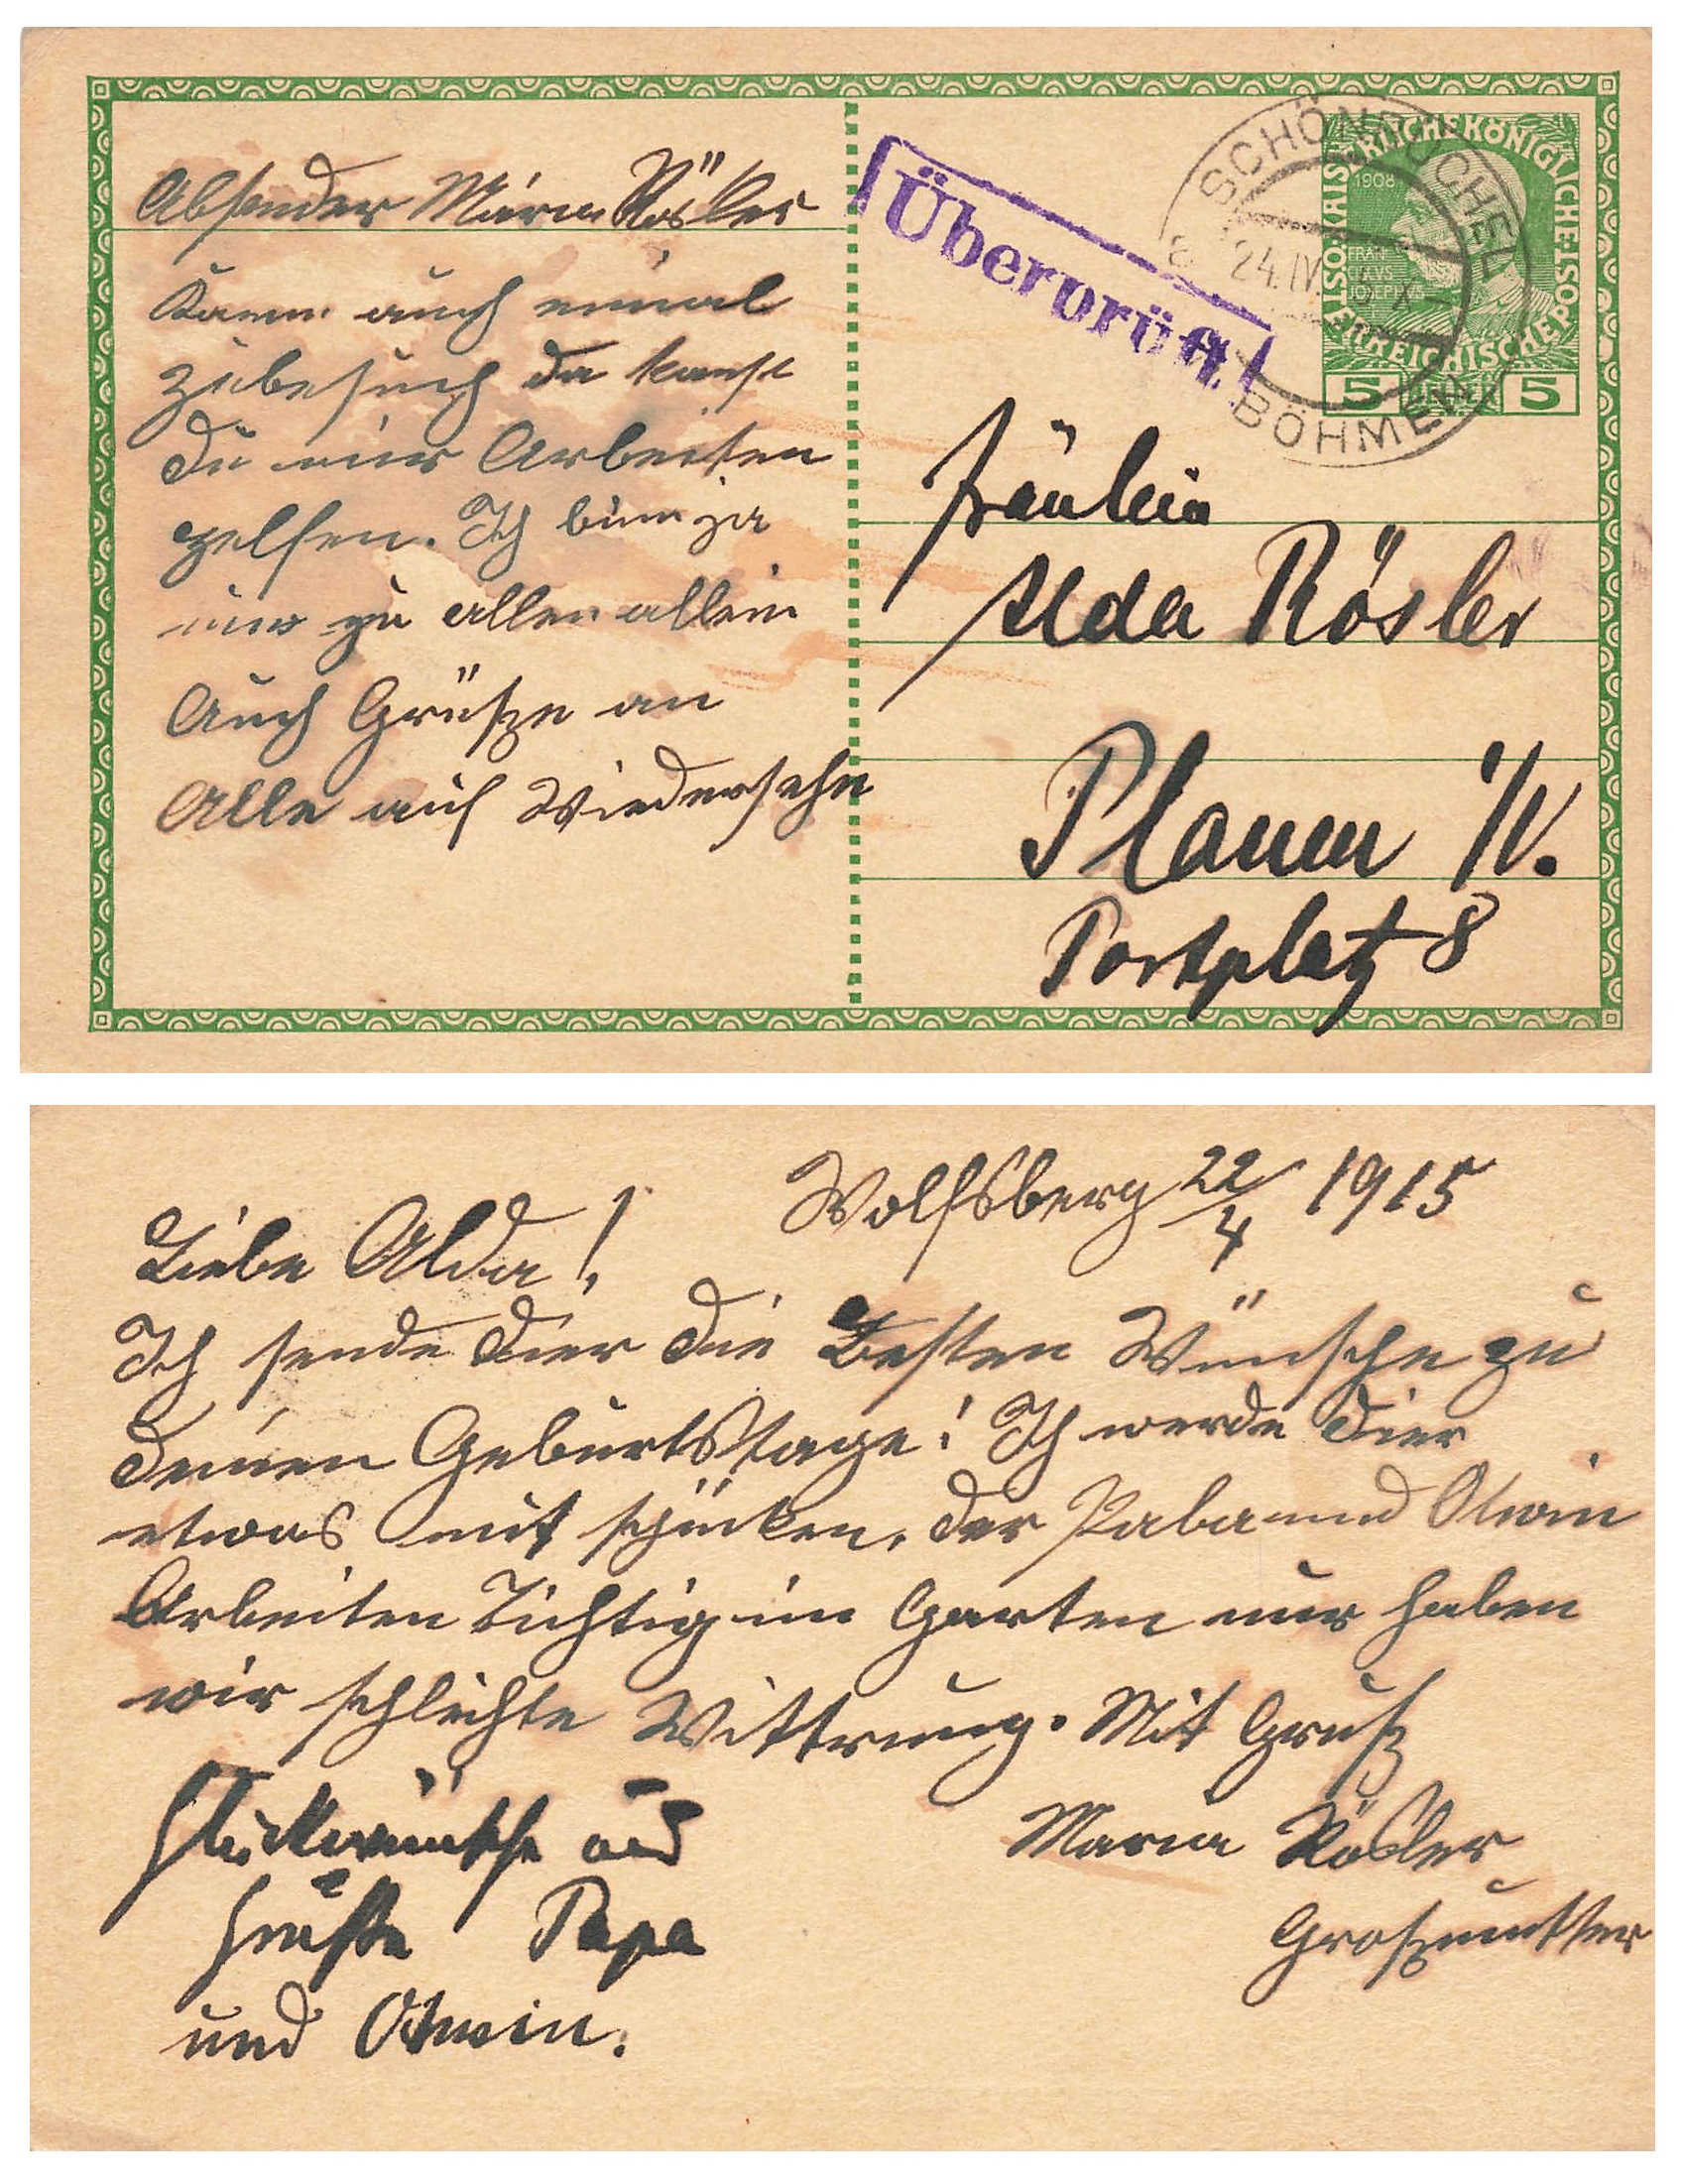 Absender Maria Rösler
Komm auch einmal
zubesuch da kanst
Du mir Arbeiten
helfen. Ich binn ja
nur zu allen allein
Auch Grüße an
Alle auf Wiedersehn
Überprüft.
SCHÖNBÜCHEL
24.IV.
BÖHMEN
KAISERLICHE KÖNIGLICHE ÖSTERREICHISCHE POST
1908
5 HELLER 5
Fräulein
Alda Rösler
Plauen i/V.
Postplatz 8
Wolfsberg 22/4 1915
Liebe Alda!
Ich sende Dier die Besten Wünsche zu
Deinen Geburtstage! Ich werde Dier
etwas mit schicken, der Paba und Otwin
Arbeiten Tichtig im Garten nur haben
wir schlechte Wittrung. Mit Gruß
Maria Rösler
Großmutter
Glückwünsche und
Grüße Papa
und Otwin.